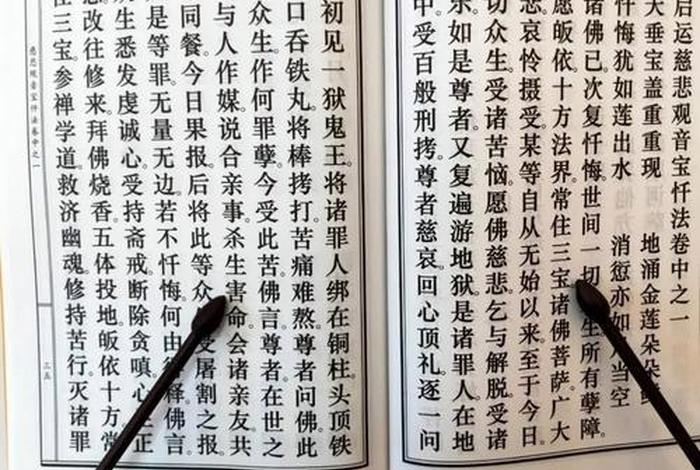 运慈悲观音宝忏法卷中之一
大垂宝盖重重现 地涌金莲朵朵
忏悔犹如莲出水 消愆亦如当空
诸佛已次复忏悔世间一切生所有孽障。
愿皈依十方法界常住三宝诸佛菩萨广大
悲哀怜摄受某等自从无始以来至于今日
切众生。受诸苦恼。愿佛慈悲。乞与解脱。受诸
乐。如是尊者。又复遍游地狱。是诸罪人。在地
中。受百般刑拷。尊者慈哀。回心顶礼。逐一问
初见一狱鬼王。将诸罪人绑在铜柱。头顶铁
口吞铁丸。将棒拷打。苦痛难熬。尊者问佛。此
众生。作何罪孽。今受此苦。佛言。尊者在世之
与人作媒。说合亲事。杀生害命。会诸亲友。共
同餐。今日果报。后将此等众受屠割之报。
是等罪。无量无边。若不忏悔。何由释。佛言。
生悉发虔诚心。受持斋戒。断除贪嗔。心正
改往修来。拜佛烧香。五体投地。皈依十方常
住三宝。参禅学道。救济幽魂。修持苦行。灭诸罪
慈悲观音宝忏法卷中之一
三五